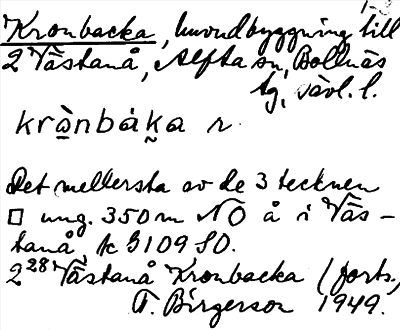 Kronbacka, huvudbyggning till
2 Västanå, Alfta sn, Bollnäs
tg, Gävl. l.
krànbáka r.
Det mellersta av de 3 tecknen
□ ung. 350 m NO å i Väs-
tanå, k G109 SO.
2²⁸ Västanå Kronbacka (forts.)
T. Birgerson 1949.